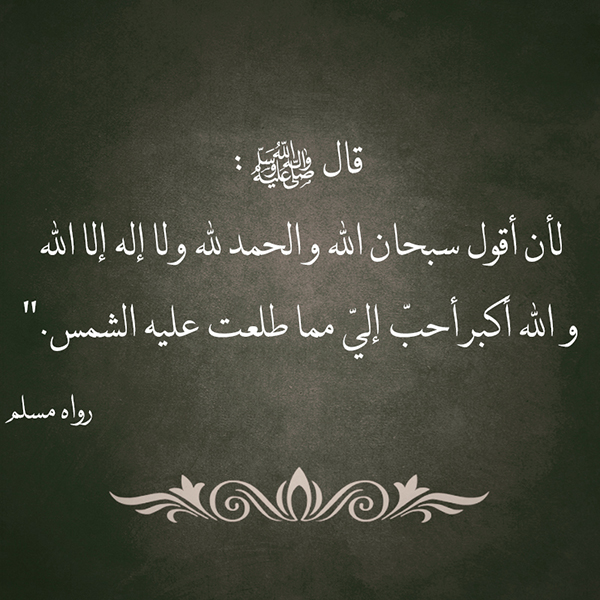 قال ﷺ :
لأن أقول سبحان الله والحمد لله ولا إله إلا الله
و الله أكبر أحبّ إليّ مما طلعت عليه الشمس."
رواه مسلم